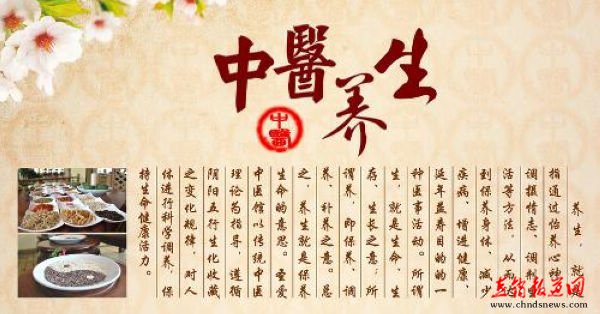 中醫养生
中醫
养生，就
指通过怡养心神
调摄情志、调剂
活等方法，从而达
到保养身体、减少
疾病、增进健康、
延年益寿目的的一
种医事活动。所谓
生，就是生命、生
存、生长之意；所
谓养，即保养、调
养、补养之意。总
之，养生就是保养
生命的意思。圣爱
中医馆以传统中医
理论为指导，遵循
阴阳五行生化收藏
之变化规律，对人
体进行科学调养，保
持生命健康活力。
直销报道网
www.chndsnews.com